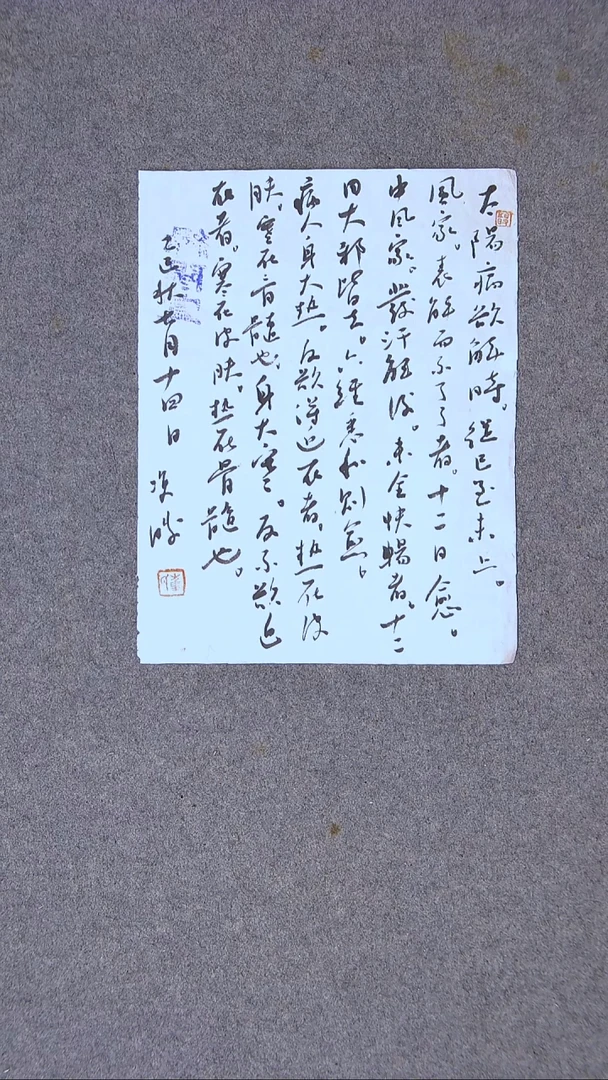 太陽病欲解時。從巳至未上。
風家。表解而不了了者。十二日愈。
中風家。發汗解後。未全快暢者。十二
日大邪皆去。六經悉和則愈。
病人身大热。反欲得近衣者。热在皮
肤。寒在骨髓也。身大寒。反不欲近
衣者。寒在皮肤。热在骨髓也。
乙巳秋七月十四日